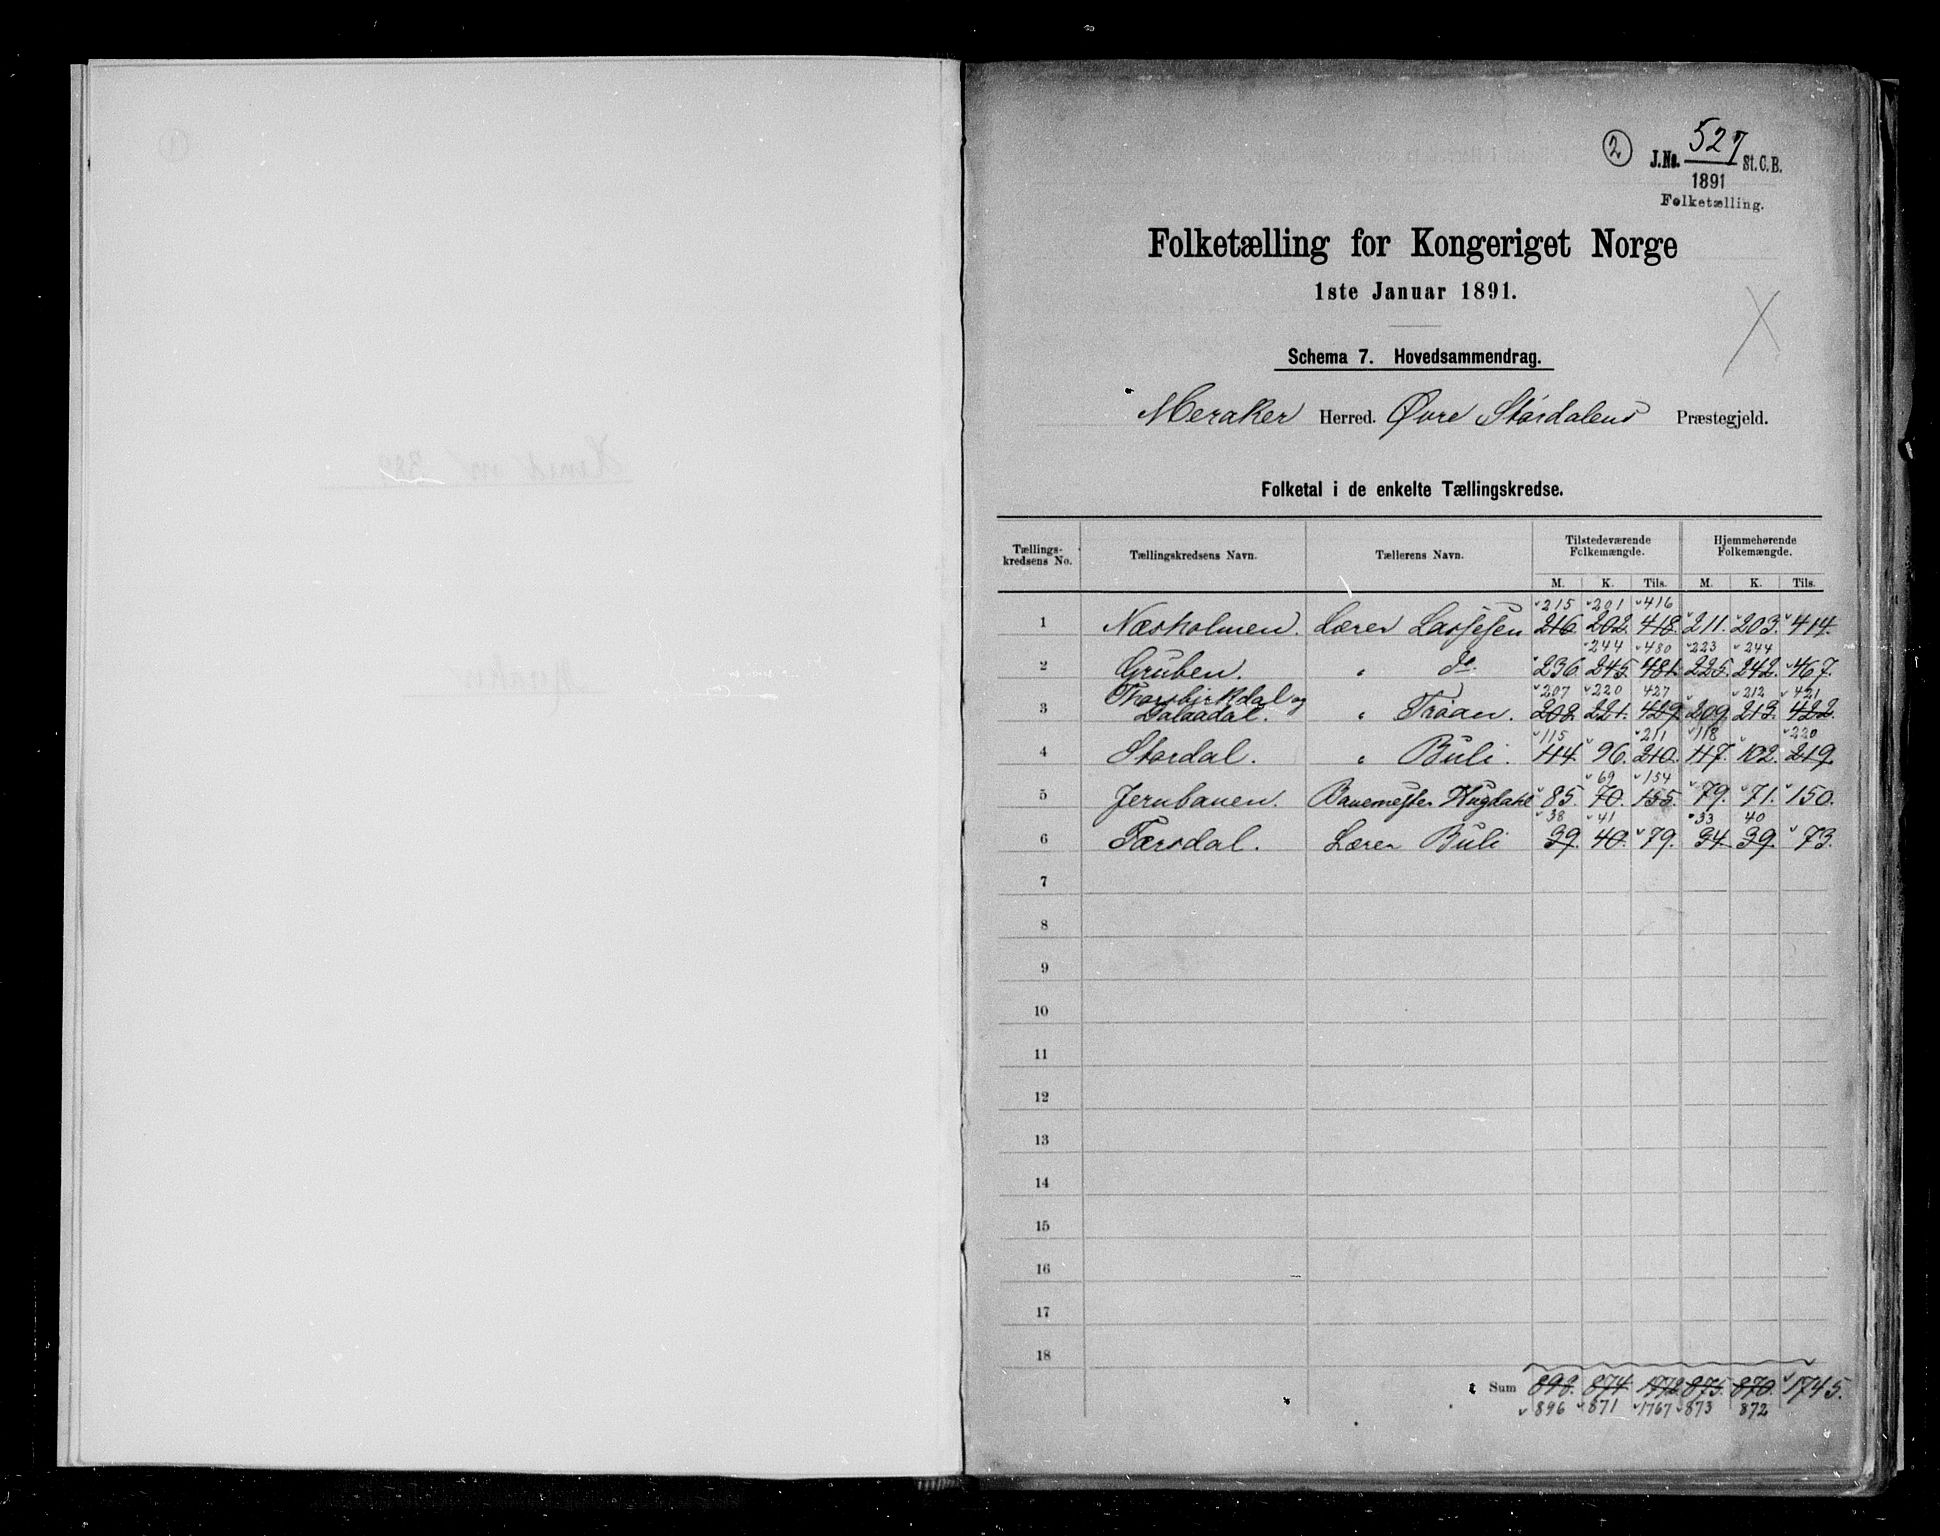 2
J.No. 527 St.C.B.
1891
Folketælling.
Folketælling for Kongeriget Norge
1ste Januar 1891.
Schema 7. Hovedsammendrag.
Meraker Herred. Øvre Stördalens Præstegjeld.
Folketal i de enkelte Tællingskredse.
Tællings-kredsens No. Tællingskredsens Navn. Tællerens Navn. Tilstedeværende Folkemængde. Hjemmehørende Folkemængde.
M. K. Tils. M. K. Tils.
215 201 416
1 Næsholmen. Lærer Lassesen 216 202. 418. 211. 203. 414.
244 480 223 244
2 Gruben. " do. 236. 245. 481. 225. 242. 467.
207 220 427 212 421
3 Thorsbjerkdal og Dalaadal. " Tröan. 208. 221. 429. 209. 213. 422.
115 211 118 220
4 Stordal. " Buli. 114. 96. 210. 117. 102. 219.
69 154
5 Jernbanen. Banemester Hugdahl 85. 70. 155. 79. 71. 150.
38 41 33 40
6 Færsdal. Lærer Buli 39. 40. 79. 34. 39. 73.
7
8
9
10
11
12
13
14
15
16
17
18
Sum 898. 874 1772 875. 870. 1745.
896 871 1767 873 872